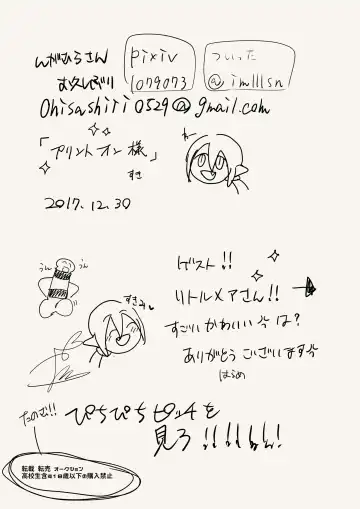 んがひらさん
pixiv
ついった
お久しぶり
1079073
@imlllsn
Ohisashiri0529@gmail.com
「プリントオン様」
すき
2017.12.30
ゲスト!!
うん
うん
リトルメアさん!!
すき
すごいかわいい☆は?
ありがとうございます☆
はらめ
たのむ!!!
ぴちぴちピッチを
見ろ!!!!
転載 転売 オークション
高校生含む18歳以下の購入禁止